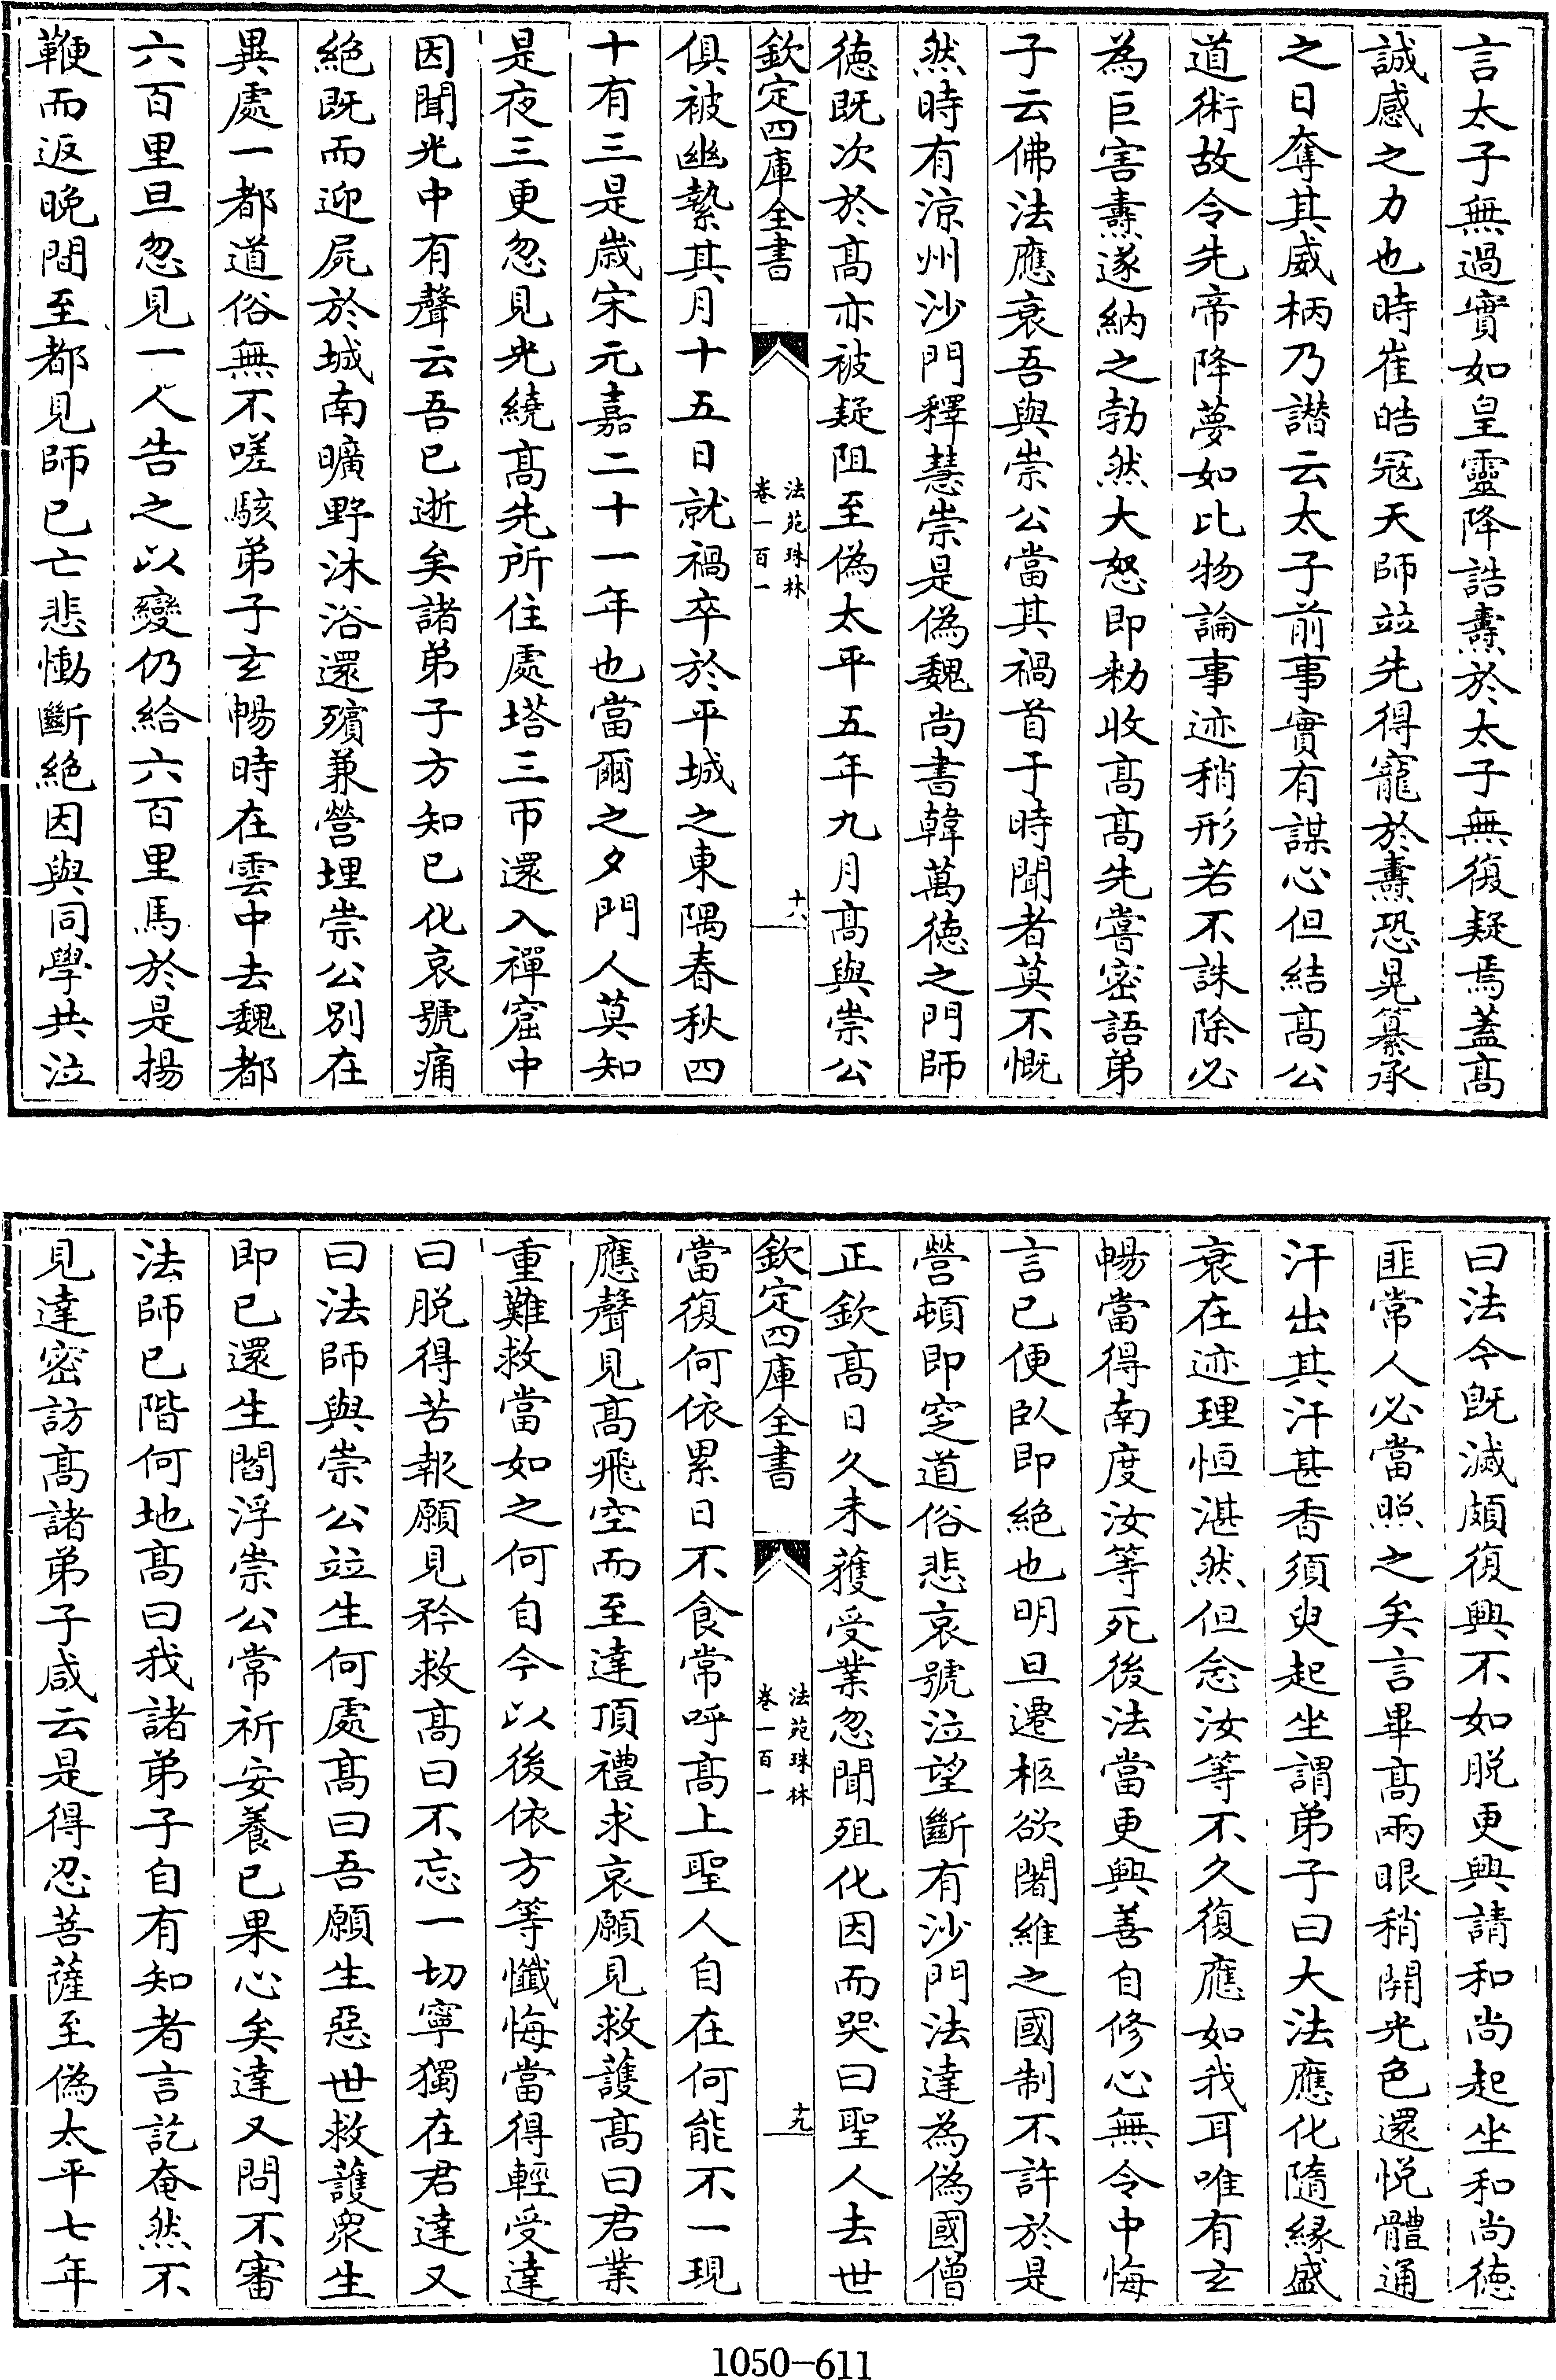 言太子無過實如皇靈降誥燾於太子無復疑焉蓋髙
誠感之力也時崔皓冦天師竝先得寵於燾恐晃纂承
之日奪其威柄乃譛云太子前事實有謀心但結髙公
道術故令先帝降夢如比物論事迹稍形若不誅除必
為巨害燾遂納之勃然大怒即勅收髙髙先嘗密語弟
子云佛法應衰吾與崇公當其禍首于時聞者莫不慨
然時有涼州沙門釋慧崇是偽魏尚書韓萬徳之門師
徳既次於髙亦被疑阻至偽太平五年九月髙與崇公
欽定四庫全書
法苑珠林
卷一百一
十八
俱被幽縶其月十五日就禍卒於平城之東隅春秋四
十有三是歲宋元嘉二十一年也當爾之夕門人莫知
是夜三更忽見光繞髙先所住處塔三帀還入禪窟中
因聞光中有聲云吾已逝矣諸弟子方知已化哀號痛
絶既而迎屍於城南曠野沐浴還殯兼營埋崇公別在
異處一都道俗無不嗟駭弟子玄暢時在雲中去魏都
六百里旦忽見一人告之以變仍給六百里馬於是揚
鞭而返晚間至都見師已亡悲慟斷絶因與同學共泣
曰法今旣滅頗復興不如脱更興請和尚起坐和尚徳
匪常人必當照之矣言畢髙兩眼稍開光色還悦體通
汗出其汗甚香須臾起坐謂弟子曰大法應化隨緣盛
衰在迹理恒湛然但念汝等不久復應如我耳唯有玄
暢當得南度汝等死後法當更興善自修心無令中悔
言已便卧即絶也明旦遷柩欲闍維之國制不許於是
營頓即窆道俗悲哀號泣望斷有沙門法達為偽國僧
正欽髙日久未獲受業忽聞殂化因而哭曰聖人去世
欽定四庫全書
法苑珠林
卷一百一
十九
當復何依累日不食常呼髙上聖人自在何能不一現
應聲見髙飛空而至達頂禮求哀願見救護髙曰君業
重難救當如之何自今以後依方等懺悔當得輕受達
曰脱得苦報願見矜救髙曰不忘一切寧獨在君達又
曰法師與崇公竝生何處髙曰吾願生惡世救護衆生
即已還生閻浮崇公常祈安養已果心矣達又問不審
法師已階何地髙曰我諸弟子自有知者言訖奄然不
見達密訪髙諸弟子咸云是得忍菩薩至偽太平七年
1050-611